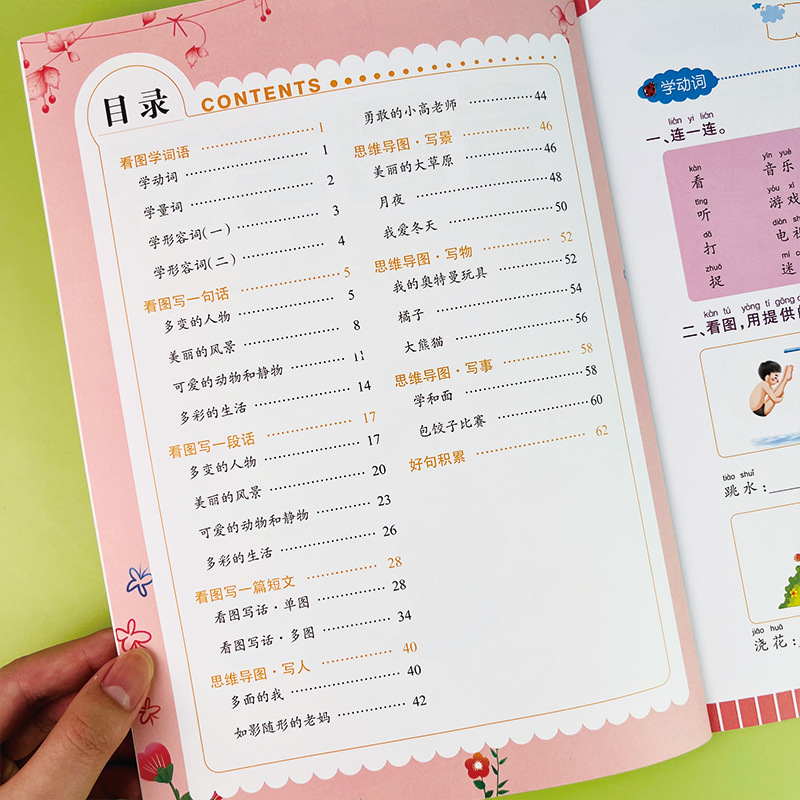 目录
CONTENTS
看图学词语 1
学动词 1
学量词 2
学形容词(一) 3
学形容词(二) 4
看图写一句话 5
多变的人物 5
美丽的风景 8
可爱的动物和静物 11
多彩的生活 14
看图写一段话 17
多变的人物 17
美丽的风景 20
可爱的动物和静物 23
多彩的生活 26
看图写一篇短文 28
看图写话·单图 28
看图写话·多图 34
思维导图·写人 40
多面的我 40
如影随形的老妈 42
勇敢的小高老师 44
思维导图·写景 46
美丽的大草原 46
月夜 48
我爱冬天 50
思维导图·写物 52
我的奥特曼玩具 52
橘子 54
大熊猫 56
思维导图·写事 58
学和面 58
包饺子比赛 60
好句积累 62
学动词
lián yi lián
一、连一连。
kàn yīn yuè
看 音乐
tīng yóu xì
听 游戏
dǎ diàn
打 电
zhuō mí
捉 迷
kàn tú yòng tí gōng
二、看图,用提供
tiào shuǐ
跳水:
jiāo huā
浇花: